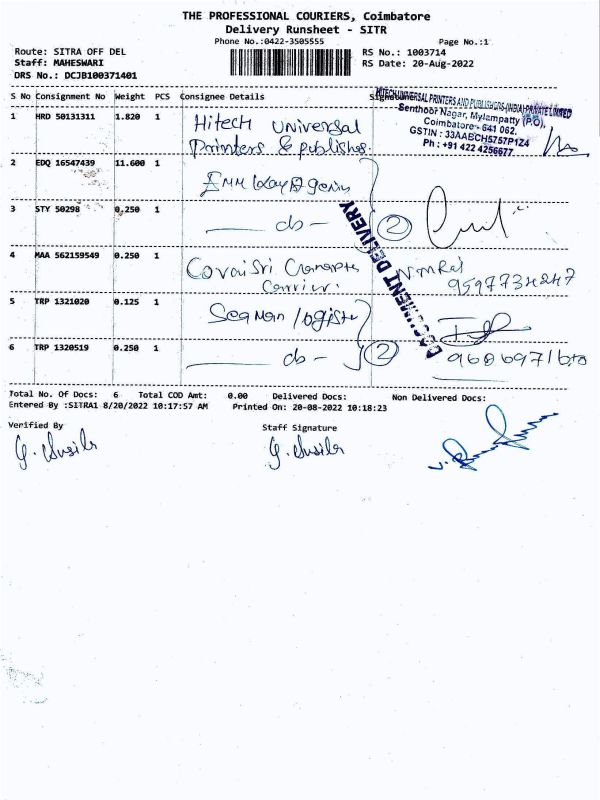 THE PROFESSIONAL COURIERS, Coimbatore
Delivery Runsheet - SITR
Phone No.:0422-3505555
Page No.:1
Route: SITRA OFF DEL
RS No.: 1003714
Staff: MAHESWARI
RS Date: 20-Aug-2022
DRS No.: DCJB100371401
S No Consignment No Weight PCS Consignee Details Signature
HITECH UNIVERSAL PRINTERS AND PUBLISHERS (INDIA) PRIVATE LIMITED
Senthoor Nagar, Mylampatty (P.O),
Coimbatore - 641 062.
GSTIN : 33AABCH5757P1Z4
Ph : +91 422 4256677
1 HRD 50131311 1.820 1 Hitech Universal
Printers & publishes.
2 EDQ 16547439 11.600 1
3 STY 50298 0.250 1 do - 2
DOCUMENT DELIVERY
4 MAA 562159549 0.250 1 Covai Sri
Carrier.
5 TRP 1321020 0.125 1 Seaman Logistic
6 TRP 1320519 0.250 1 do - 2
Total No. Of Docs: 6 Total COD Amt: 0.00 Delivered Docs: Non Delivered Docs:
Entered By :SITRA1 8/20/2022 10:17:57 AM Printed On: 20-08-2022 10:18:23
Verified By Staff Signature